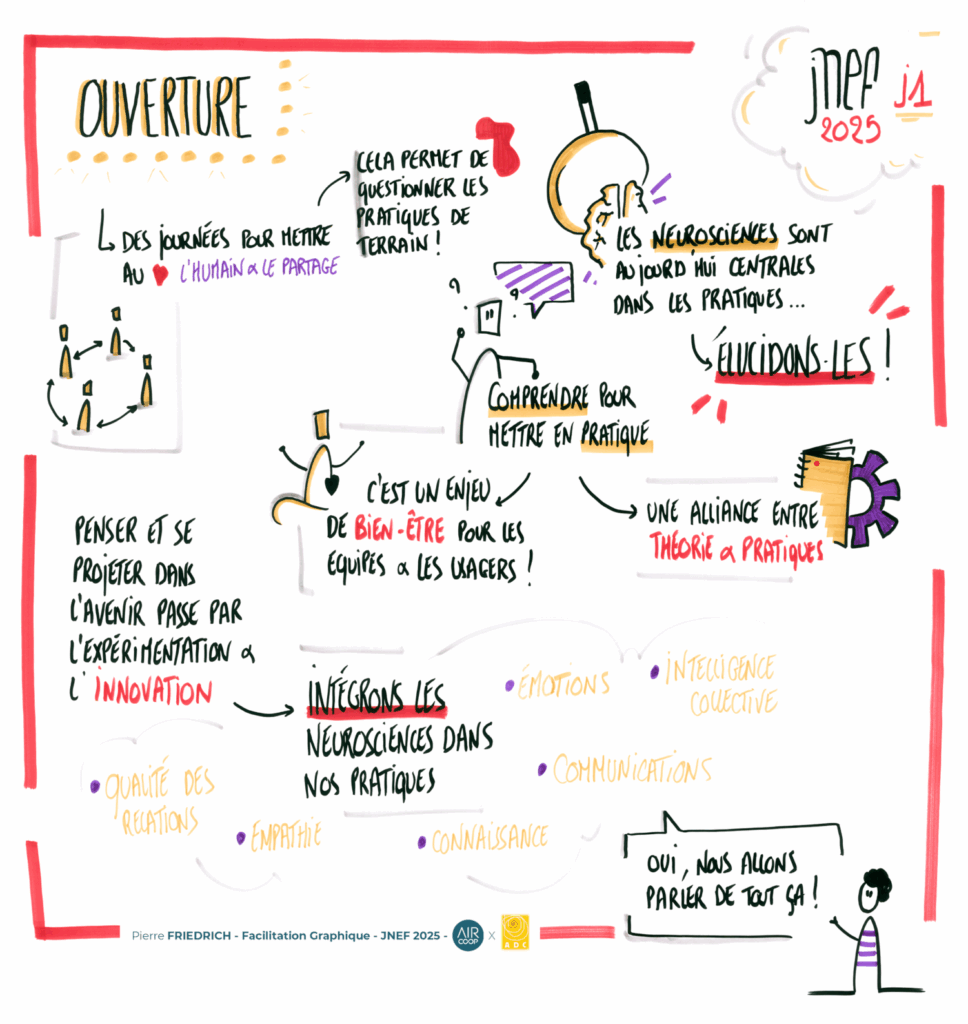 OUVERTURE
JNEF J1
2025
DES JOURNÉES POUR METTRE
AU L'HUMAIN & LE PARTAGE
CELA PERMET DE
QUESTIONNER LES
PRATIQUES DE
TERRAIN !
LES NEUROSCIENCES SONT
AUJOURD'HUI CENTRALES
DANS LES PRATIQUES...
ÉLUCIDONS-LES !
? ?
COMPRENDRE POUR
METTRE EN PRATIQUE
C'EST UN ENJEU
DE BIEN-ÊTRE POUR LES
ÉQUIPES & LES USAGERS !
UNE ALLIANCE ENTRE
THÉORIE & PRATIQUES
PENSER ET SE
PROJETER DANS
L'AVENIR PASSE PAR
L'EXPÉRIMENTATION &
L'INNOVATION
INTÉGRONS LES
NEUROSCIENCES DANS
NOS PRATIQUES
• ÉMOTIONS
• INTELLIGENCE
COLLECTIVE
• COMMUNICATIONS
• QUALITÉ DES
RELATIONS
• EMPATHIE
• CONNAISSANCE
OUI, NOUS ALLONS
PARLER DE TOUT ÇA !
Pierre FRIEDRICH - Facilitation Graphique - JNEF 2025 - AIR COOP X ADC